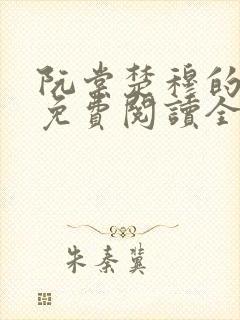 阮棠楚穆的
免費閱讀全
朱秦冀